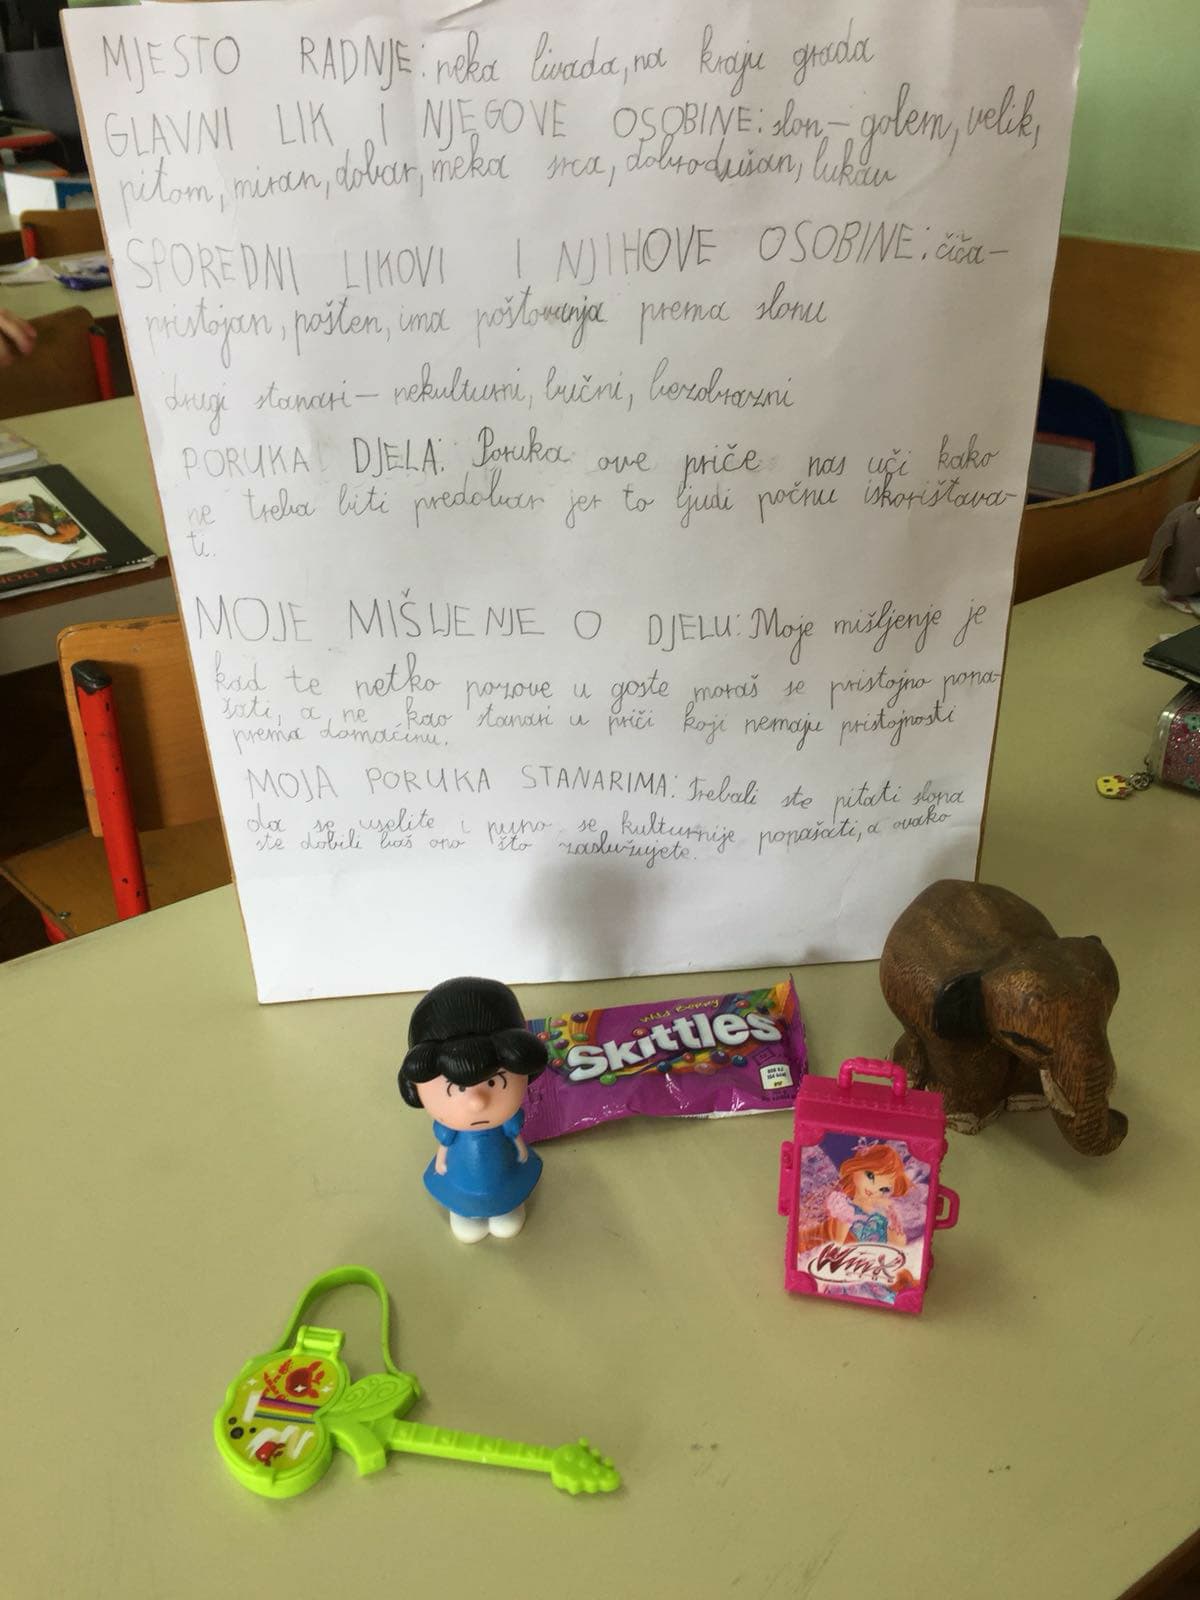 MJESTO RADNJE: neka livada, na kraju grada
GLAVNI LIK I NJEGOVE OSOBINE: slon – golem, velik,
pitom, miran, dobar, meka srca, dobrodušan, lukav
SPOREDNI LIKOVI I NJIHOVE OSOBINE: čiča –
pristojan, pošten, ima poštovanja prema slonu
drugi stanari – nekulturni, bučni, bezobrazni
PORUKA DJELA: Poruka ove priče nas uči kako
ne treba biti predobar jer to ljudi počnu iskorištava-
ti.
MOJE MIŠLJENJE O DJELU: Moje mišljenje je
kad te netko pozove u goste moraš se pristojno pona-
šati, a ne kao stanari u priči koji nemaju pristojnosti
prema domaćinu.
MOJA PORUKA STANARIMA: Trebali ste pitati slona
da se uselite i puno se kulturnije ponašati, a ovako
ste dobili baš ono što zaslužujete.
Wild Berry
Skittles
Winx